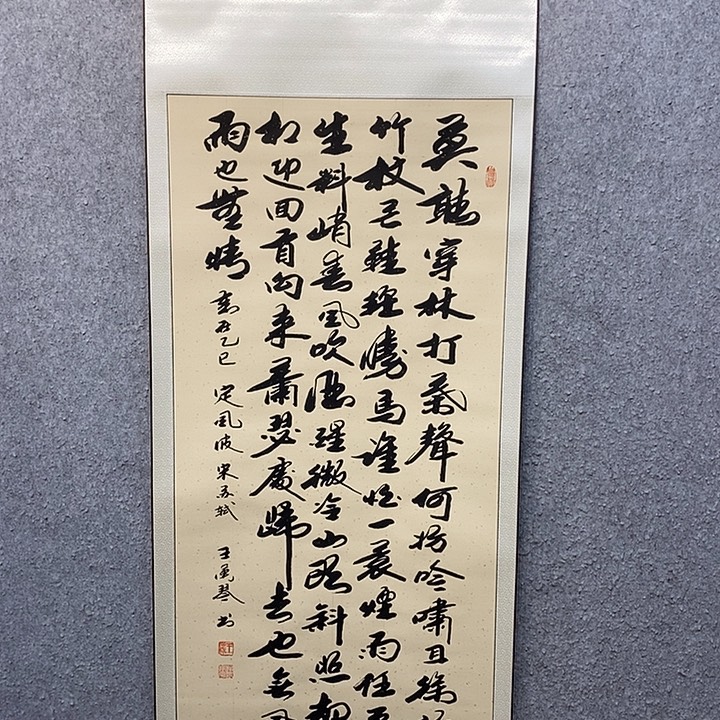 莫聽穿林打葉聲何妨吟嘯且徐
竹杖芒鞋輕勝馬誰怕一蓑煙雨任平
生料峭春風吹酒醒微冷山頭斜照却
相迎回首向来蕭瑟處歸去也無風
雨也無晴
歲在乙巳 定風波 宋蘇軾